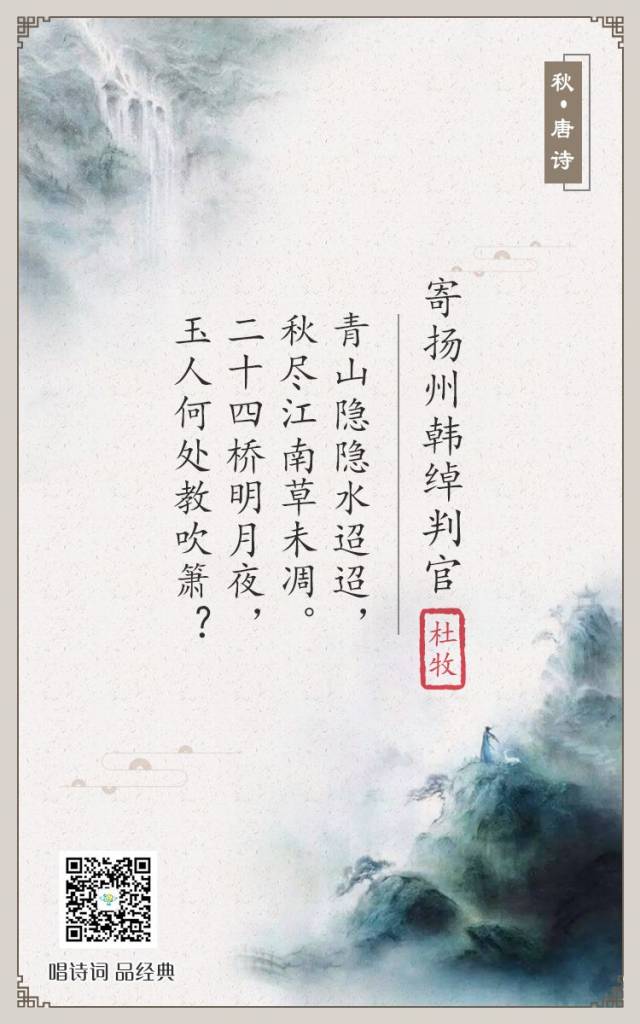 秋·唐诗
寄扬州韩绰判官
杜牧
青山隐隐水迢迢，
秋尽江南草未凋。
二十四桥明月夜，
玉人何处教吹箫？
唱诗词 品经典